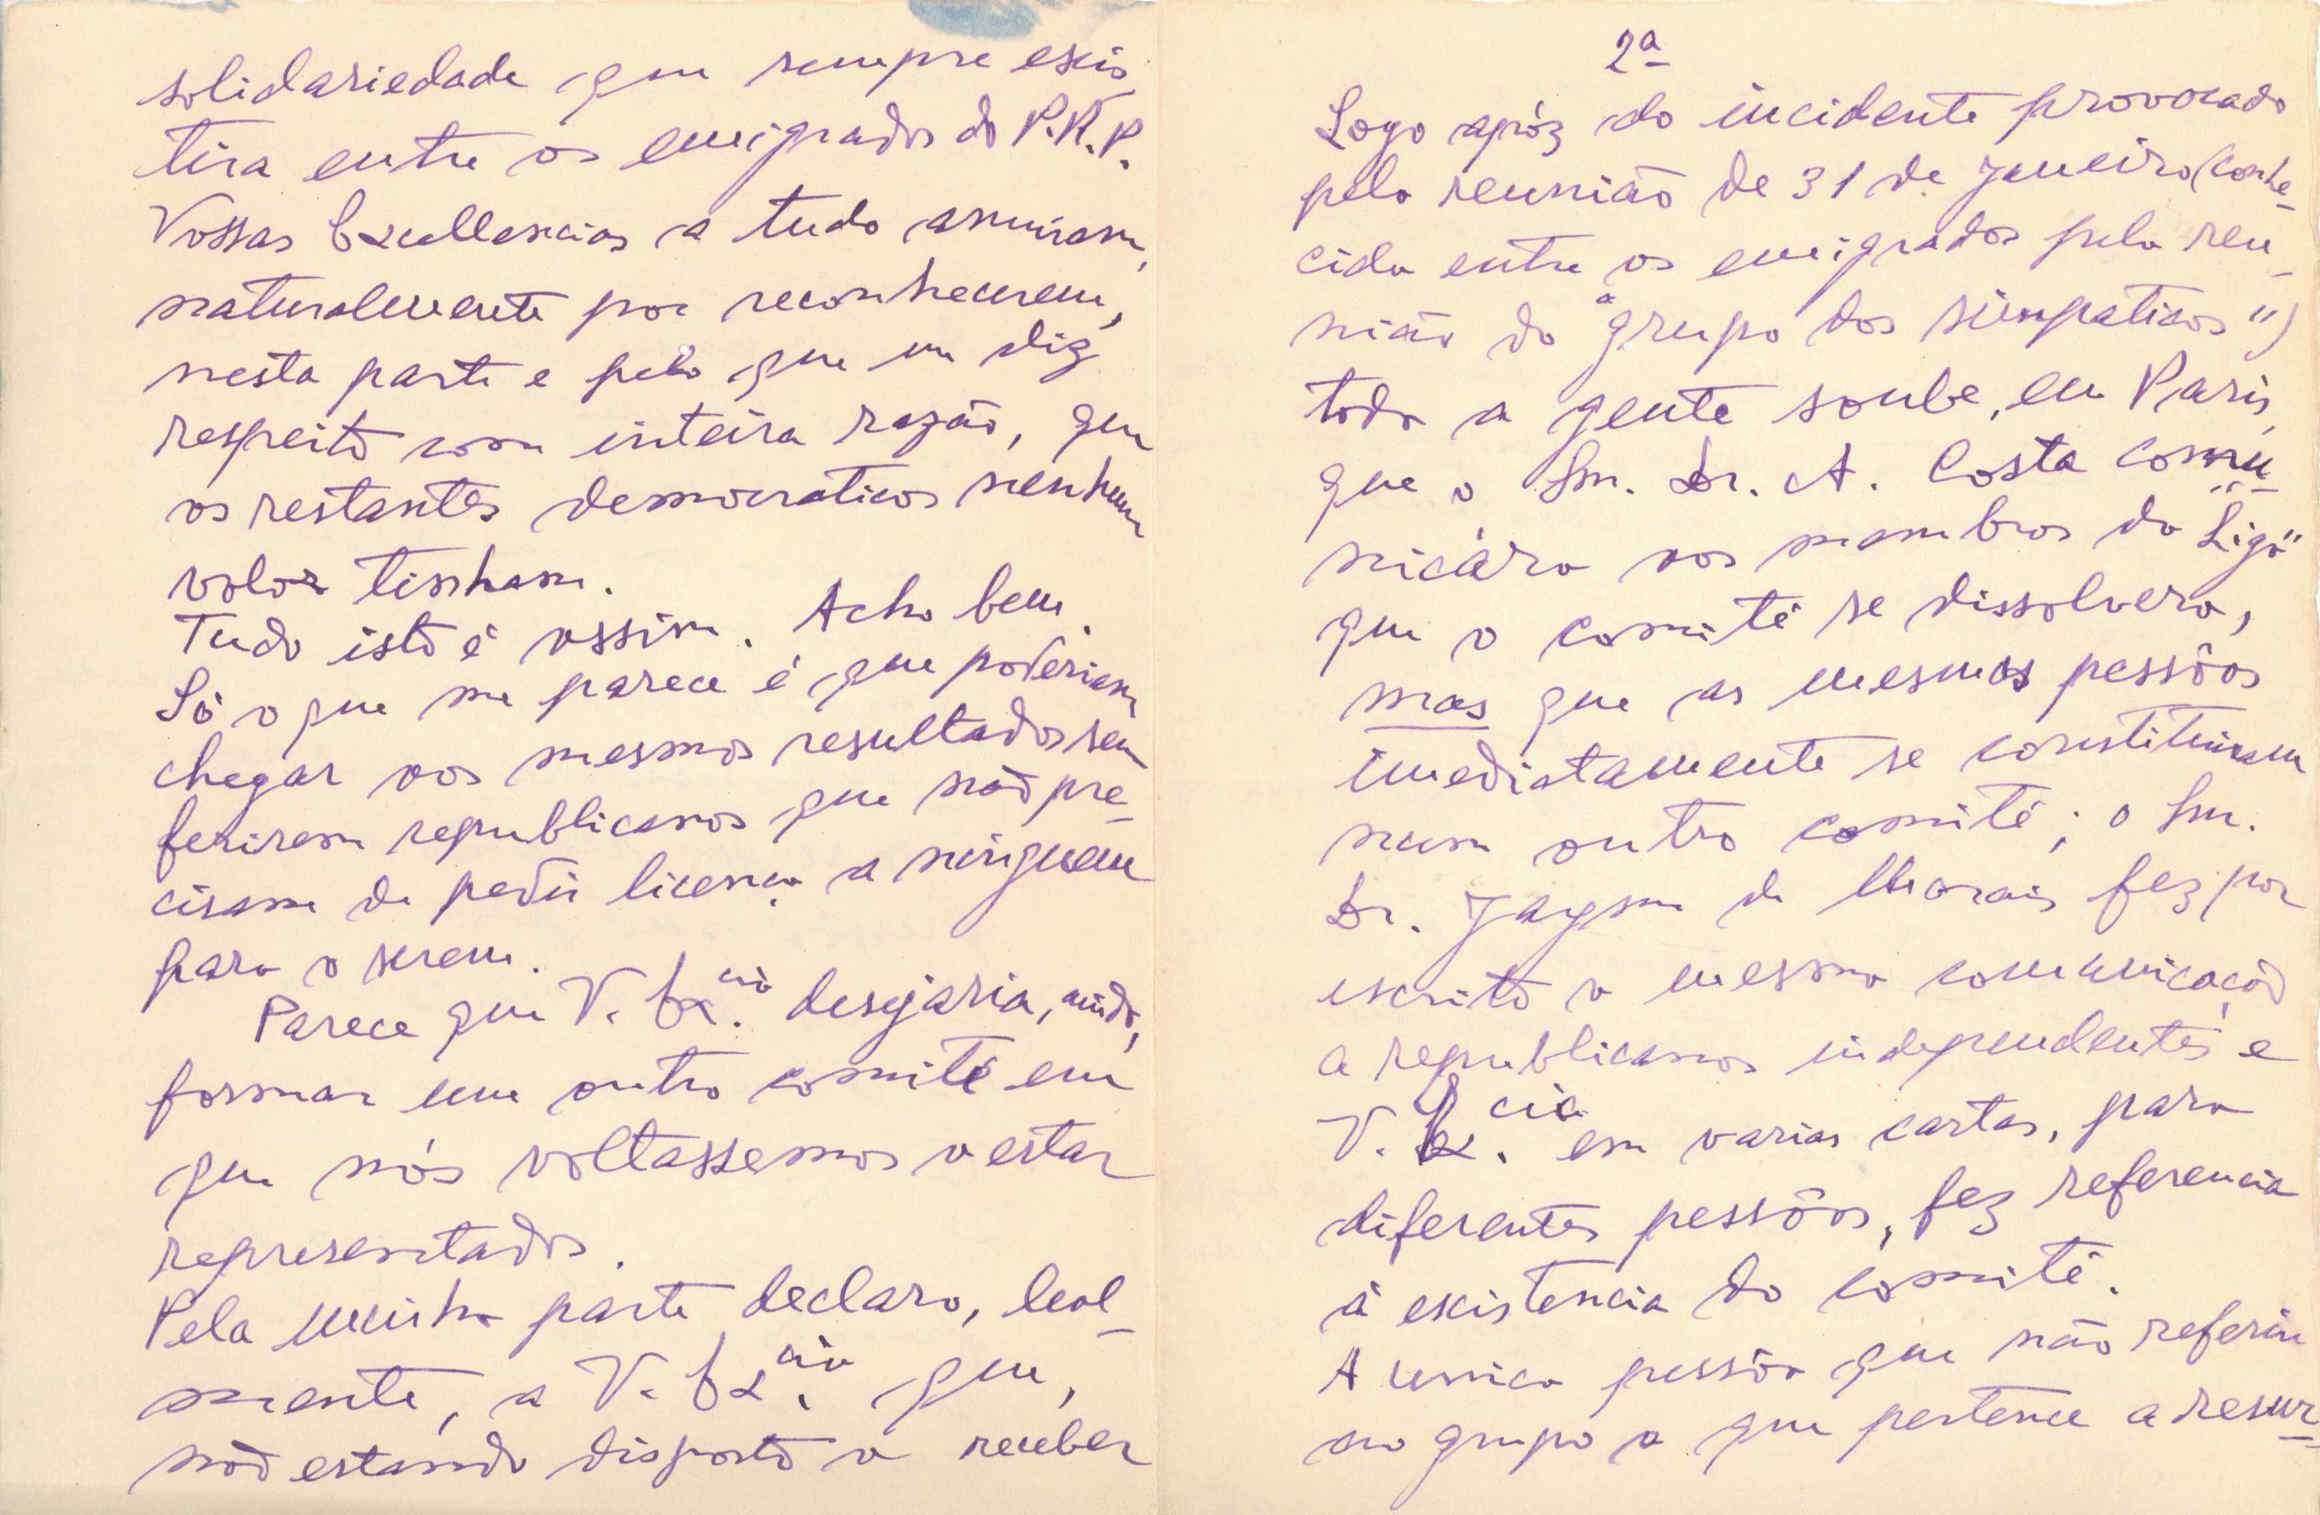 solidariedade que sempre exis
tira entre os emigrados do P.R.P.
Vossas Excellencias a tudo anuiram,
naturalmente por reconhecerem,
nesta parte e pelo que me diz
respeito com inteira razão, que
os restantes democraticos nenhum
valor tinham.
Tudo isto é assim. Acho bem.
Só o que me parece é que poderiam
chegar aos mesmos resultados sem
ferirem republicanos que não pre-
cisam de pedir licença a ninguem
para o serem.
Parece que V. Ex.cia desejaria, ainda,
formar um outro comité em
que nós voltassemos a estar
representados.
Pela minha parte declaro, leal-
mente, a V. Ex.cia que,
não estando disposto a receber
2ª
Logo após do incidente provocado
pela reunião de 31 de Janeiro (conhe-
cida entre os emigrados pela reu-
nião do "grupo dos simpaticos")
toda a gente soube, em Paris,
que o Snr. Dr. A. Costa comu-
nicára aos membros da "Liga"
que o comité se dissolvera,
mas que as mesmas pessôas
imediatamente se constituiram
num outro comité; o Snr.
Dr. Jayme de Morais fez por
escrito a mesma comunicação
a republicanos independentes e
V. Ex.cia em varias cartas, para
diferentes pessôas, fez referencia
á existencia do comité.
A unica pessôa que não referiu
no grupo a que pertence a resur-